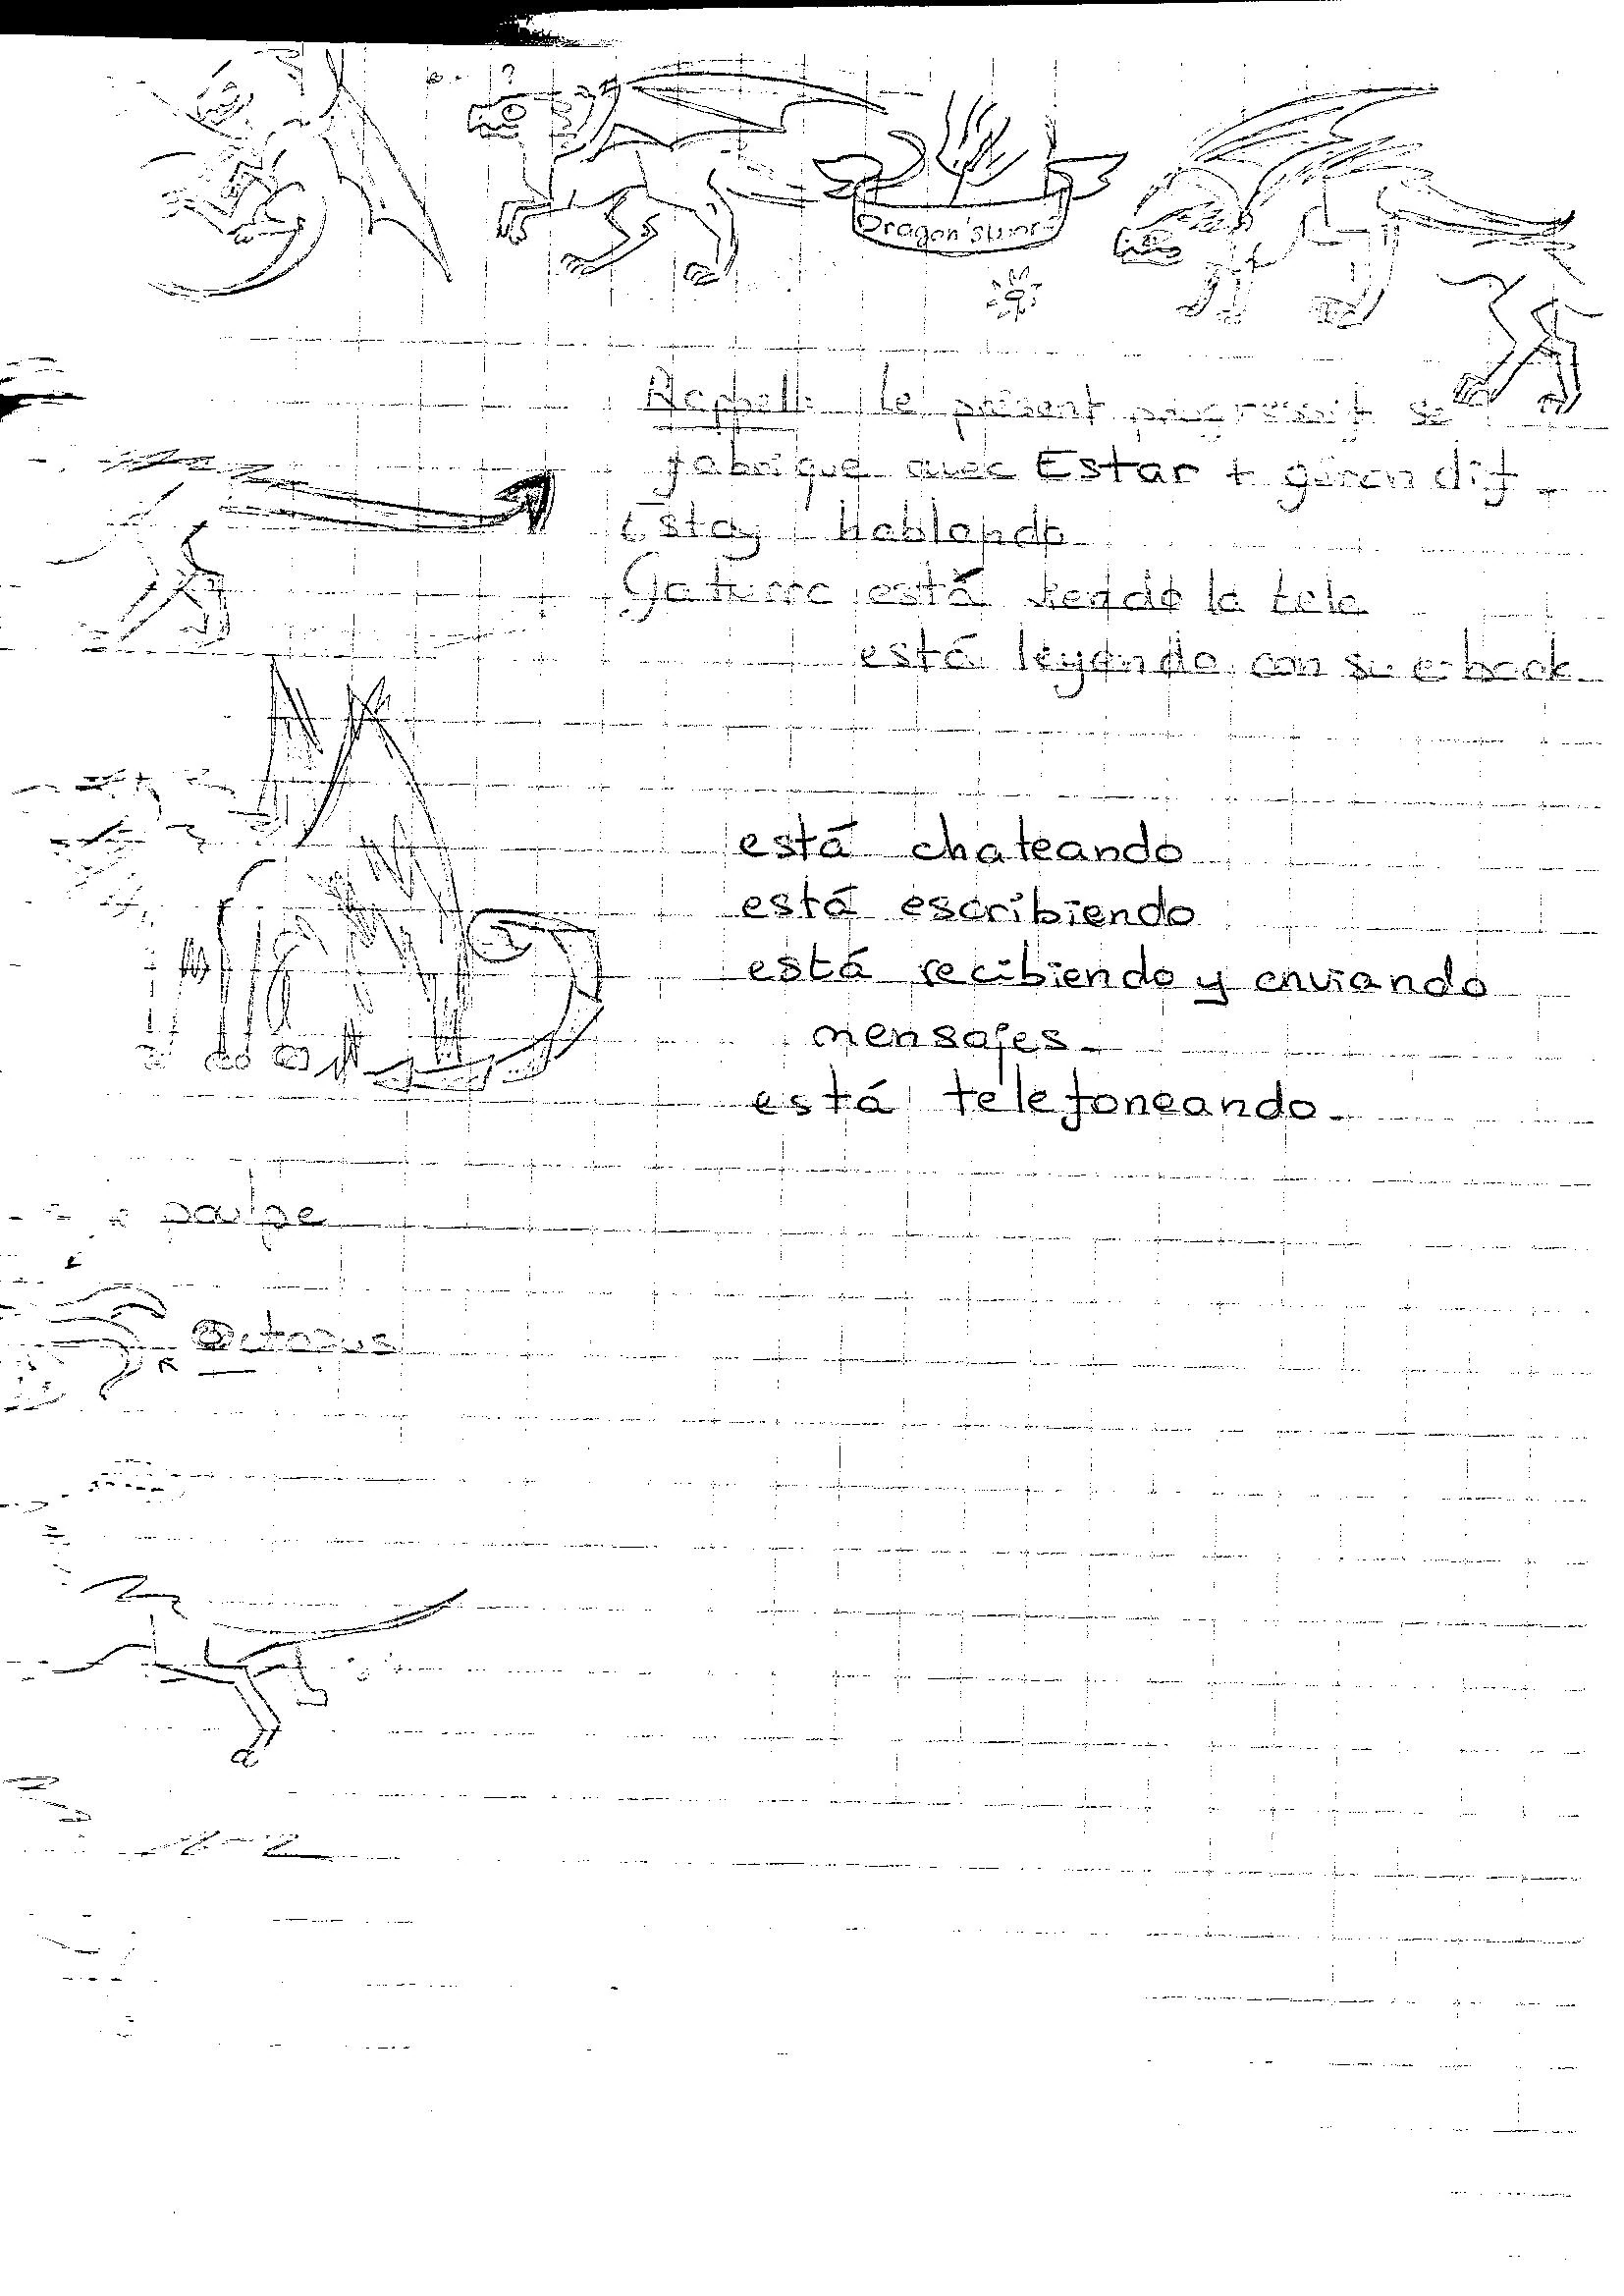 Dragon's
Rappell: le présent progressif se
fabrique avec Estar + gérondif
Estoy hablando
Gaturro está viendo la tele
está leyendo con su e-book
está chateando
está escribiendo
está recibiendo y enviando
mensajes.
está telefoneando.
poulpe
Octopus